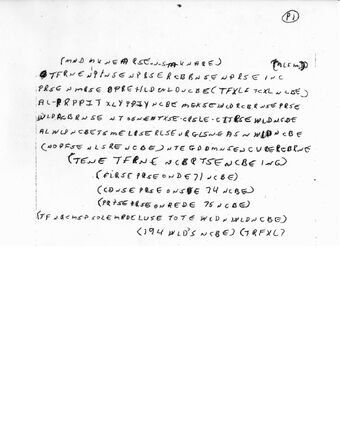 P1
(MND MKNEARSE-N-S-M-KNARE) (ALSM)
TFRNE NPINSENPRSERCBRNSENPRSE INC
PRSE NMRSE OPREHLDWLDNCBE (TFXLF TCXL NCBE)
AL-PRPPIT XLYPPIY NCBE MGKSE WLDRCBRNSE PRSE
WLDRCBRNSE NTSSNENTXSE-CRSLE-CITRSE WLDNCBE
ALWLDNCBETSMELRSERLSEURGLSNEASN WLDNCBE
(NOPFSE NLSRE NCBE) NTEGDDMNSENCURERCBRNE
(TENE TFRNE NCBRTSENCBE INC)
(FLRSE PRSEONDE 71 NCBE)
(CDNSE PRSEONSDE 74 NCBE)
(PRTSE PRSEONREDE 75 NCBE)
(TFNQCMSPSOLEMRDELUSE TOTE WLDN WLDNCBE)
(194 WLD'S NCBE) (TRFXL)